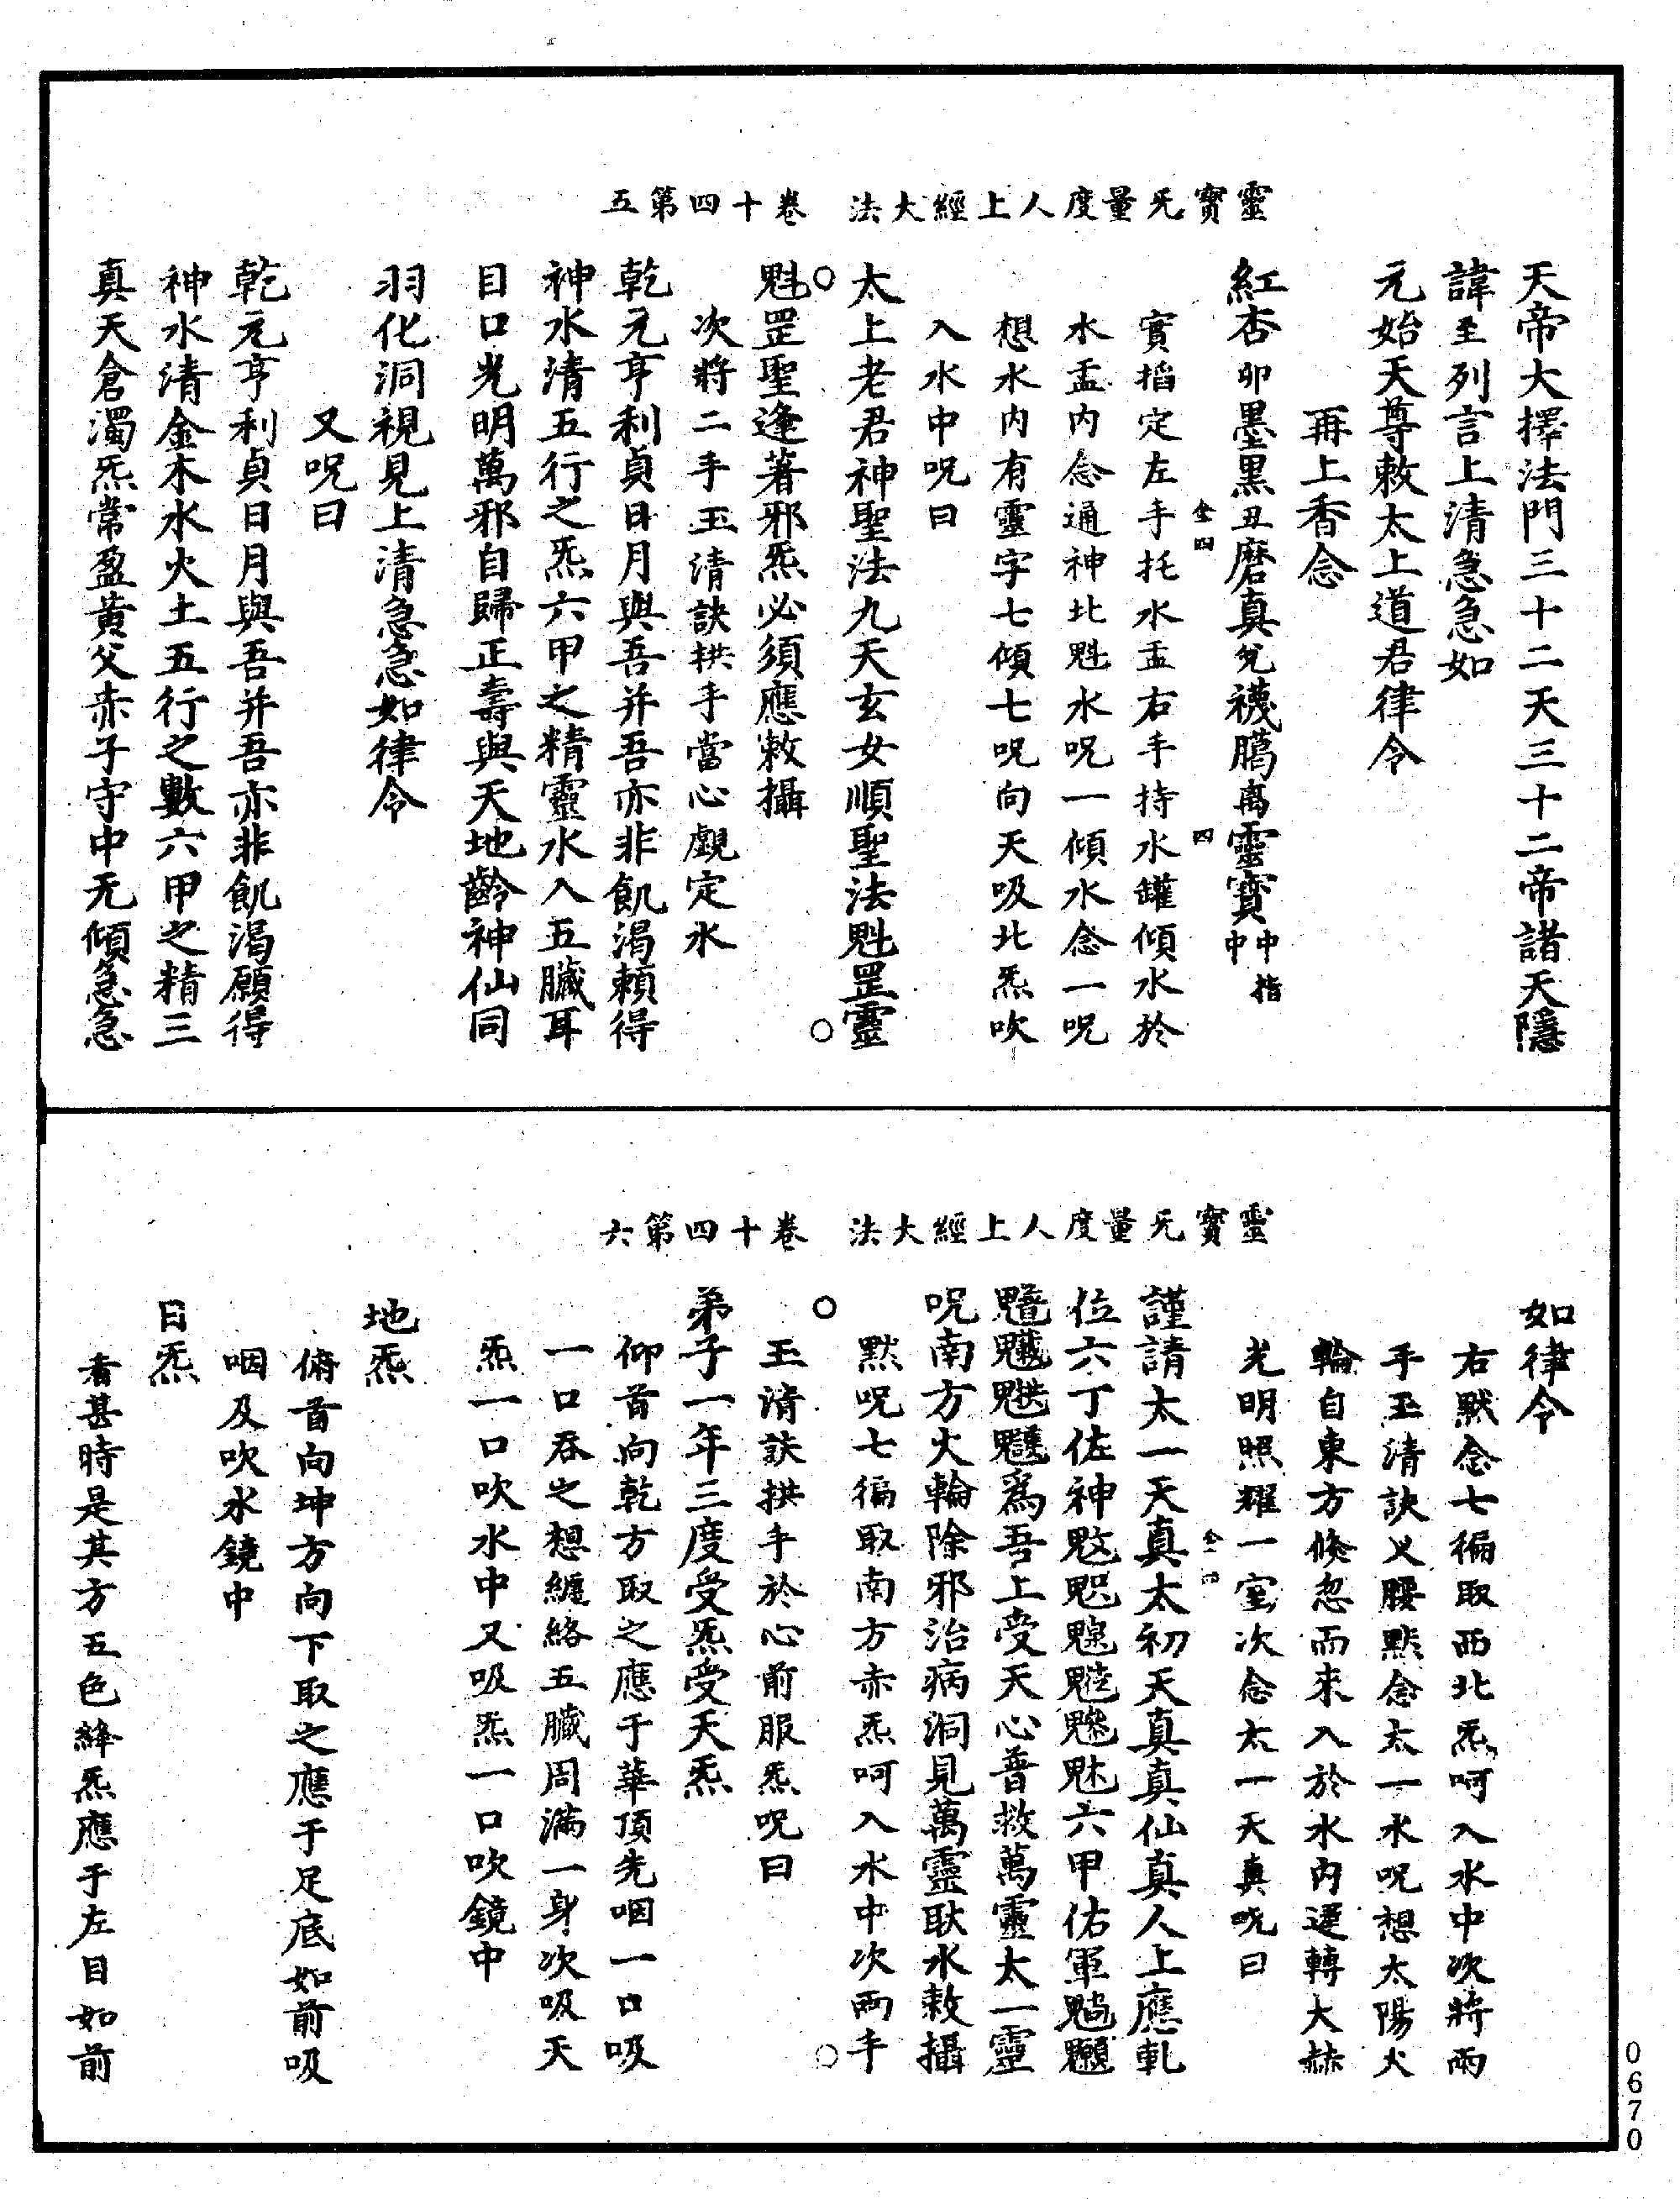 靈寶无量度人上經大法　卷十四第五
天帝大擇法門三十二天三十二帝諸天隱
諱至列言上清急急如
元始天尊敕太上道君律令
再上香念
紅杏卯墨黑丑磨真兌襪臈离靈寶中指中
實掐定左手托水盂右手持水罐傾水於
水盂内念通神北魁水呪一傾水念一呪
想水内有靈字七傾七呪向天吸北炁吹
入水中呪曰
太上老君神聖法九天玄女順聖法魁罡靈
魁罡聖逢著邪炁必須應敕攝
次將二手玉清訣拱手當心觑定水
乾元亨利貞日月與吾并吾亦非飢渴賴得
神水清五行之炁六甲之精靈水入五臟耳
目口光明萬邪自歸正壽與天地齡神仙同
羽化洞視見上清急急如律令
又呪曰
乾元亨利貞日月與吾并吾亦非飢渴願得
神水清金木水火土五行之數六甲之精三
真天倉濁炁常盈黃父赤子守中无傾急急
靈寶无量度人上經大法　卷十四第六
如律令
右默念七徧取西北炁呵入水中次將兩
手玉清訣乂腰默念太一水呪想太陽火
輪自東方倏忽而來入於水内運轉大赫
光明照耀一室次念太一天真呪曰
謹請太一天真太初天真真仙真人上應軋
位六丁佐神六甲佑軍
爲吾上受天心普救萬靈太一靈
呪南方火輪除邪治病洞見萬靈耿水敕攝
默呪七徧取南方赤炁呵入水中次兩手
玉清訣拱手於心前服炁呪曰
弟子一年三度受炁受天炁
仰首向乾方取之應于華頂先咽一口吸
一口吞之想纏絡五臟周滿一身次吸天
炁一口吹水中又吸炁一口吹鏡中
地炁
俯首向坤方向下取之應于足底如前吸
咽及吹水鏡中
日炁
看甚時是其方五色絳炁應于左目如前
0670